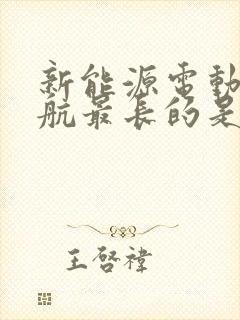 新能源電動
航最長的是
王啓禕